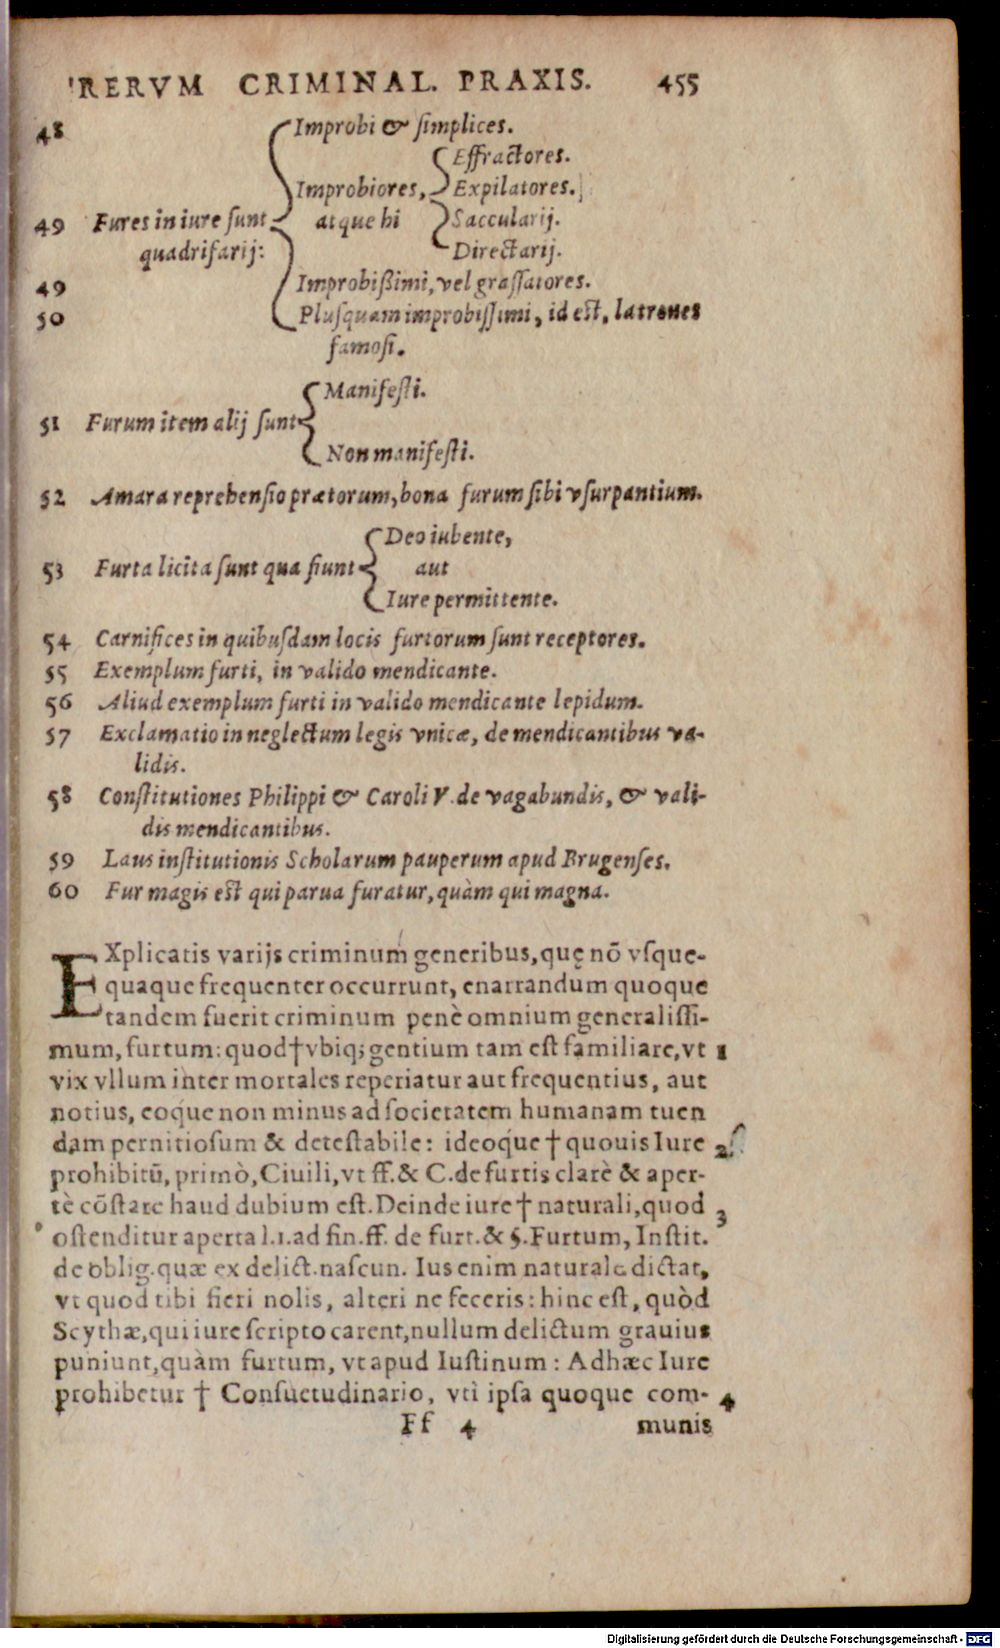 RERVM CRIMINAL. PRAXIS. 455
48 Improbi & ſimplices.
Effractores.
Improbiores, Expilatores.
49 Fures in iure ſunt atque hi Saccularij.
quadrifarij: Directarij.
49 Improbißimi, vel graſſatores.
50 Pluſquam improbiſſimi, id est, latrones
famoſi.
Manifeſti.
51 Furum item alij ſunt
Non manifeſti.
52 Amara reprehenſio prætorum, bona furum ſibi vſurpantium.
Deo iubente,
53 Furta licita ſunt qua fiunt aut
Iure permittente.
54 Carnifices in quibuſdam locis furtorum ſunt receptores.
55 Exemplum furti, in valido mendicante.
56 Aliud exemplum furti in valido mendicante lepidum.
57 Exclamatio in neglectum legis vnicæ, de mendicantibus va-
lidis.
58 Conſtitutiones Philippi & Caroli V. de vagabundis, & vali-
dis mendicantibus.
59 Laus inſtitutionis Scholarum pauperum apud Brugenſes.
60 Fur magis est qui parua furatur, quàm qui magna.
EXplicatis varijs criminum generibus, quę nō vſque-
quaque frequenter occurrunt, enarrandum quoque
tandem fuerit criminum penè omnium generaliſſi-
mum, furtum: quod†vbiq; gentium tam eſt familiare, vt 1
vix vllum inter mortales reperiatur aut frequentius, aut
notius, eoq́ue non minus ad ſocietatem humanam tuen
dam pernitioſum & deteſtabile: ideoq́ue † quouis Iure 2
prohibitū, primò, Ciuili, vt ff. & C. de furtis clarè & aper-
tè cōſtare haud dubium eſt. Deinde iure † naturali, quod 3
oſtenditur aperta l.1. ad fin. ff. de furt. & §. Furtum, Inſtit.
de oblig. quæ ex delict. naſcun. Ius enim naturale dictat,
vt quod tibi fieri nolis, alteri ne feceris: hinc eſt, quòd
Scythæ, qui iure ſcripto carent, nullum delictum grauius
puniunt, quàm furtum, vt apud Iuſtinum: Adhæc Iure
prohibetur † Conſuetudinario, vti ipſa quoque com- 4
Ff 4 munis
Digitalisierung gefördert durch die Deutsche Forschungsgemeinschaft - DFG